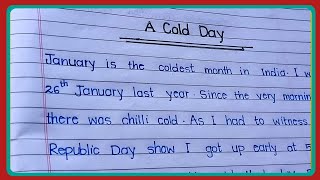 A Cold Day
January is the coldest month in India. I w
26th January last year. Since the very mornin
there was chilli cold. As I had to witness
Republic Day show I got up early at 5